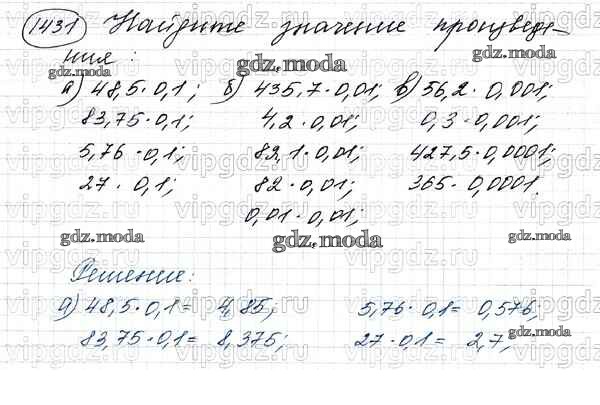 1431 Найдите значение произведе-
ния:
а) 48,5 · 0,1; б) 435,7 · 0,01; в) 56,2 · 0,001;
83,75 · 0,1; 4,2 · 0,01; 0,3 · 0,001;
5,76 · 0,1; 82,1 · 0,01; 427,5 · 0,0001;
27 · 0,1; 82 · 0,01; 365 · 0,0001.
0,01 · 0,01;
Решение:
а) 48,5 · 0,1 = 4,85; 5,76 · 0,1 = 0,576;
83,75 · 0,1 = 8,375; 27 · 0,1 = 2,7;
gdz.moda
gdz.moda
gdz.moda
gdz.moda
gdz.moda
gdz.moda
gdz.moda
gdz.moda